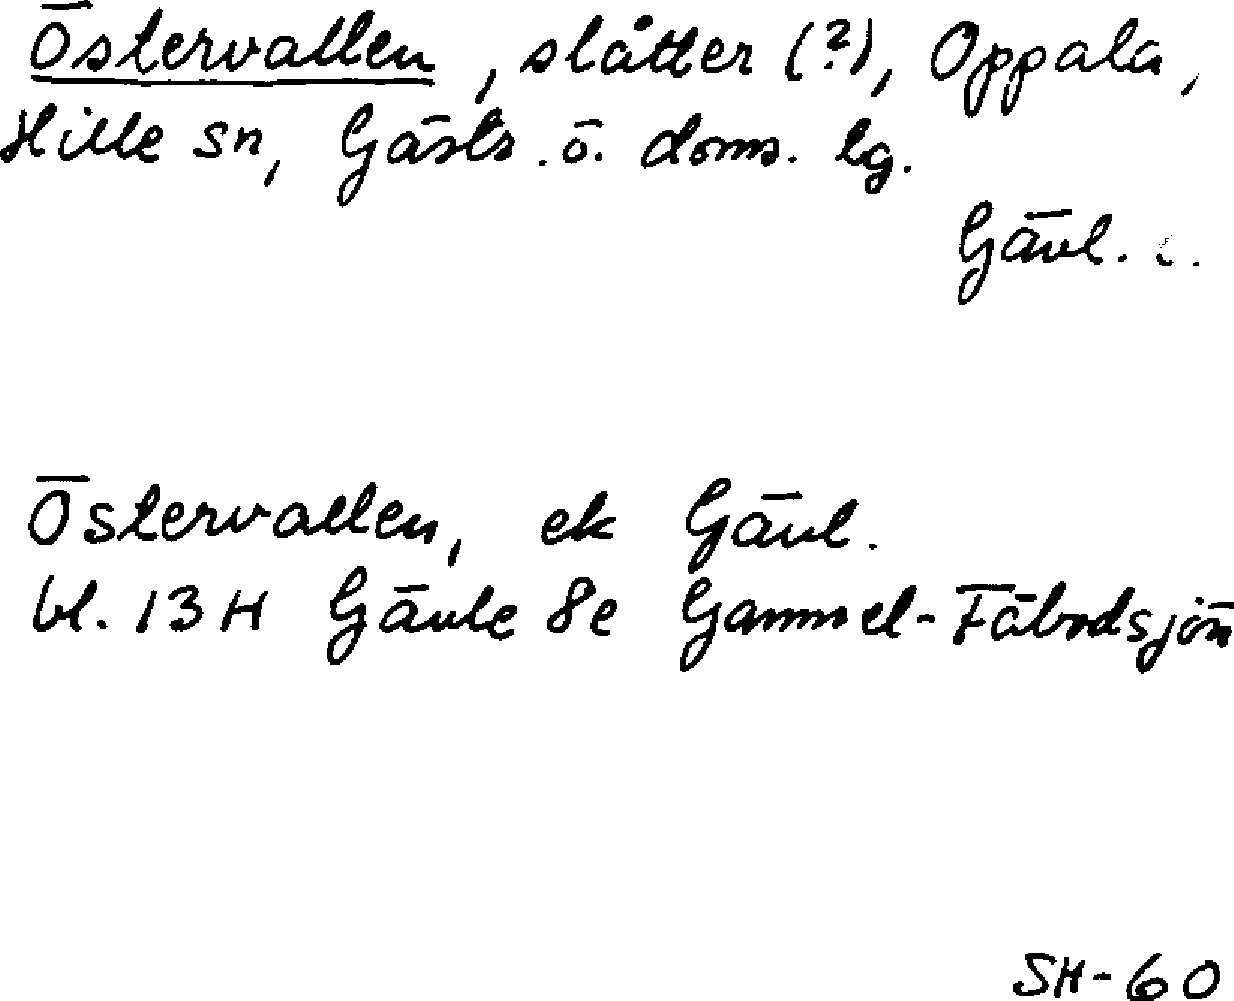 Östervallen, slåtter (?), Oppala,
Hille sn, Gästr. ö. doms. lg.
Gävl. l.
Östervallen, ek Gävl.
bl. 13H Gävle 8e Gammel-Fäbodsjön
SH-60